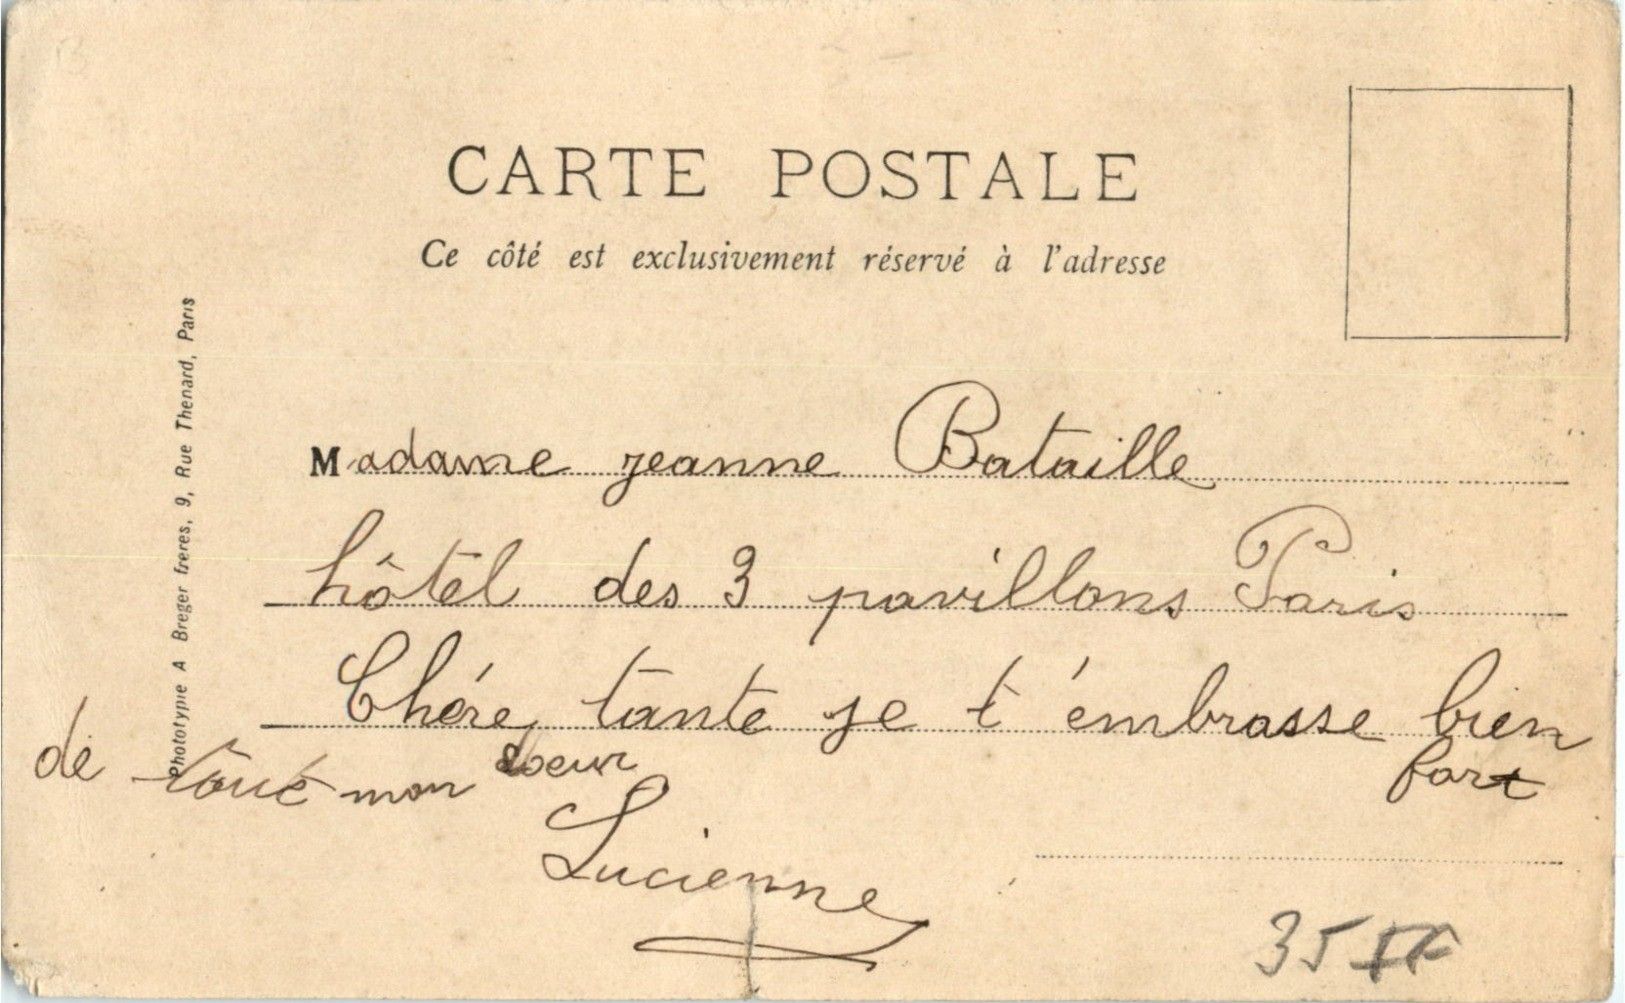 CARTE POSTALE
Ce côté est exclusivement réservé à l'adresse
Phototypie A Breger freres, 9, Rue Thenard, Paris
Madame jeanne Bataille
hôtel des 3 pavillons Paris
Chére tante je t'émbrasse bien
fort
de tout mon coeur
Lucienne
35